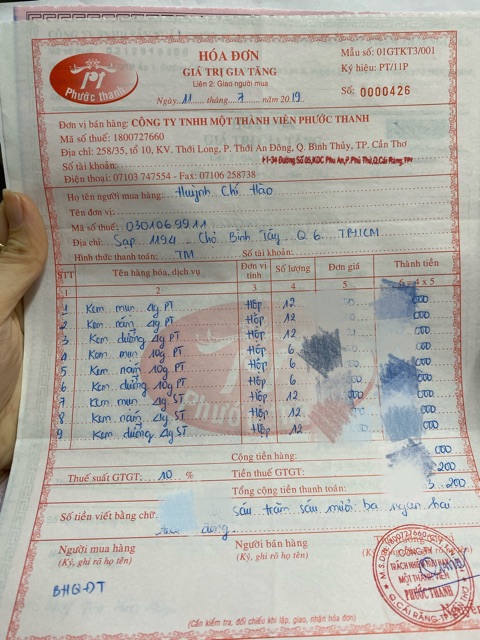 HÓA ĐƠN
GIÁ TRỊ GIA TĂNG
Liên 2: Giao người mua
Ngày 11 tháng 7 năm 2019
Mẫu số: 01GTKT3/001
Ký hiệu: PT/11P
Số: 0000426
PT
Phước thanh
Đơn vị bán hàng: CÔNG TY TNHH MỘT THÀNH VIÊN PHƯỚC THANH
Mã số thuế: 1800727660
Địa chỉ: 258/35, tổ 10, KV. Thới Long, P. Thới An Đông, Q. Bình Thủy, TP. Cần Thơ
Số tài khoản:
F1-34 Đường Số 05, KDC Phú An, P. Phú Thứ, Q. Cái Răng,
Điện thoại: 07103 747554 - Fax: 07106 258738
Họ tên người mua hàng: Huỳnh Chí Hào
Tên đơn vị:
Mã số thuế: 0301069911
Địa chỉ: Sạp 1194 Chợ Bình Tây Q.6 TPHCM
Hình thức thanh toán: TM Số tài khoản:
STT Tên hàng hóa, dịch vụ Đơn vị tính Số lượng Đơn giá Thành tiền
1 2 3 4 5 6 = 4 x 5
1 Kem mụn 4g PT Hộp 12 000
2 Kem nám 4g PT Hộp 12 000
3 Kem dưỡng 4g PT Hộp 12 000
4 Kem mụn 10g PT Hộp 6 000
5 Kem nám 10g PT Hộp 6 000
6 Kem dưỡng 10g PT Hộp 6 000
7 Kem mụn 4g ST Hộp 12 000
8 Kem nám 4g ST Hộp 12 000
9 Kem dưỡng 4g ST Hộp 12 000
Phước thanh
Cộng tiền hàng: 000
Thuế suất GTGT: 10 % Tiền thuế GTGT: 200
Tổng cộng tiền thanh toán: 3.200
Số tiền viết bằng chữ: sáu trăm sáu mươi ba ngàn hai
đồng
Người mua hàng
(Ký, ghi rõ họ tên)
Người bán hàng
(Ký, ghi rõ họ tên)
BHQĐT
CÔNG TY
TRÁCH NHIỆM HỮU HẠN
MỘT THÀNH VIÊN
PHƯỚC THANH
(Cần kiểm tra, đối chiếu khi lập, giao, nhận hóa đơn)